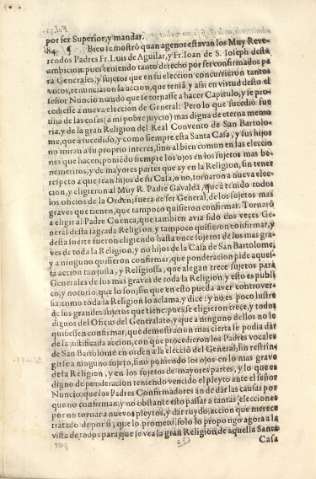 por ser Superior, y mandar.
84 ¶ Bien lo mostrò quan agenos estavan los Muy Reve-
rẽdos Padres Fr. Luis de Aguilar, y Fr. Ioan de S. Ioseph desta
ambicion, pues teniendo tanto derecho por ser confirmados pa
ra Generales, y sujetos que en su eleccion concurrieron tantos
votos, renunciaron la accion, que tenià, y assi en virtud desto el
señor Nuncio mandò que se tornasse a hacer Capitulo, y se pro-
cediesse à nueva eleccion de General: Pero lo que sucediò fue
una de las cosas (a mi pobre juycio) mas digna de eterna memo-
ria, y de la gran Religion del Real Convento de San Bartolo-
me, que a sucedido, y como siempre esta Santa Casa, y sus hijos
no miran a su proprio interes, sino al bien comun en las eleccio
nes que hacen, poniẽdo siempre los ojos en los sujetos mas be-
nemeritos, y de mayores partes que ay en la Religion, sin tener
respeto a que sean hijos de su Casa, ò no, tornaron a nueva elec
cion, y eligieron al Muy R. Padre Gavaldà, que à tenido todos
los oficios de la Orden, fuera de ser General, de los sujetos mas
graves que tienen, que tampoco quisieron confirmar. Tornarõ
a eligir al Padre Cuenca, que tambien avia sido dos veces Ge-
neral desta sagrada Religion, y tampoco quisieron confirmar, y
desta suerte fueron eligiendo hasta once sujetos de los mas gra-
ves de toda la Religion, y no hijos de la Casa de San Bartolome,
y a ninguno quisieron confirmar, que ponderacion pide aques-
ta accion tan justa, y Religiosa, que alegan trece sujetos para
Generales de los mas graves de toda la Religion, y esto es publi
co, y notorio, que lo son, sin que en esto pueda aver controver-
sia como toda la Religion lo aclama, y dice: y no es poco lustre
de los grandes sujetos que tiene, pues se eligieron trece, y todos
dignos del Oficio del Generalato, y que a ninguno dellos no lo
quisiessen confirmar, que demostracion mas cierta se podia dar
de la justificada accion, con que procedieron los Padres vocales
de San Bartolome en orden a la elecciõ del General, sin restrin
girse a ningun sujeto, sino poniendo los ojos en lo mas grave
de la Religion, y en los sujetos de mayores partes, y lo que es
digno de ponderacion teniendo vencido el pleyto ante el señor
Nuncio, que los Padres Confirmadores an de dar las causas por
que no confirman, y no obstante esto passar a tantas elecciones
por no tornar a nuevos pleytos, y dar ruydo, accion que merece
tratado de por si, que lo prometo, solo lo propongo agora a la
vista de todos para que se vea la gran Religion de aquella Santa
Casa